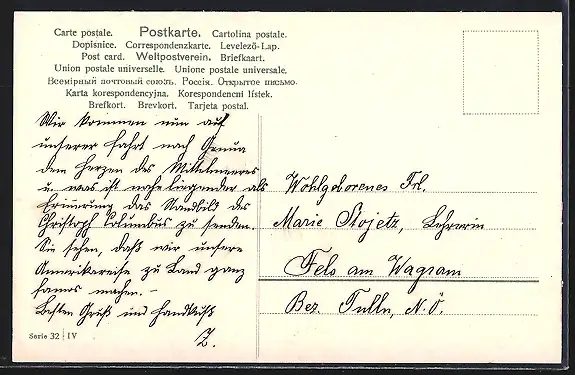 Carte postale. Postkarte. Cartolina postale.
Dopisnice. Correspondenzkarte. Levelező-Lap.
Post card. Weltpostverein. Briefkaart.
Union postale universelle. Unione postale universale.
Всемірный почтовый союзъ. Россія. Открытое письмо.
Karta korespondencyjna. Korespondencni lístek.
Brefkort. Brevkort. Tarjeta postal.
Wir kommen nun auf
unserer Fahrt nach Genua
dem Herzen des Mittelmeeres
u. was ist naheliegender als
Erinnerung das Standbild des
Christoph Columbus zu senden.
Sie sehen, daß wir unsere
Amerikareise zu Land ganz
famos machen. –
Besten Gruß und Handkuß
Z.
Wohlgeborenes Frl.
Marie Stojetz, Lehrerin
Fels am Wagram
Bez. Tulln, N.Ö.
Serie 32 IV